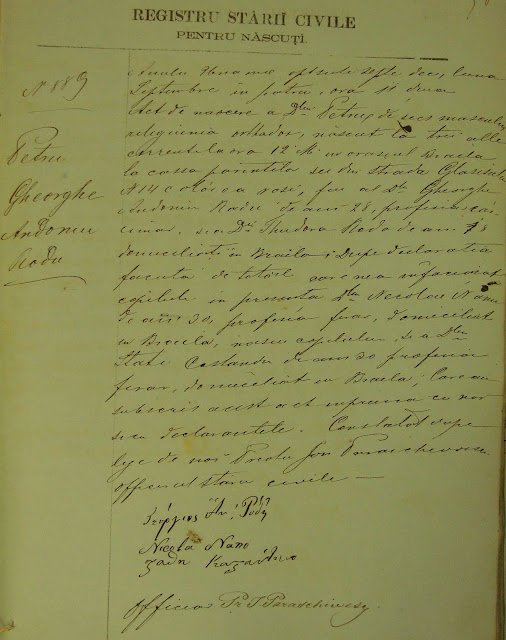 REGISTRU STĂRIĬ CIVILE
PENTRU NĂSCUȚĬ.
N 889
Petru
Gheorghe
Andoniu
Radu
Anulu Una mie optsute septe deci, luna
Septembre in patru, ora 11 diua
Act de nascere a Dlui Petru de secs masculu
religiunia ortodocs, născut la trei alle
currente la ora 12 in orașul Braela
la cassa parintelui seu din strada
N 14 coloarea rosi, fiu al D. Gheorghe
Andoniu Radu de ani 28, profesia
si a D. Theodora Radu de ani 18
domiciliati in Braila; Dupe declaratia
facuta de tatăl care nea infaciosat
copilulu in presența Dlui Nicolae Nanu
de ani 30, profesia ferar, domiciliat
in Braela, nasiu copilului, si a Dlui
Stati Costandu de ani 30 profesia
ferar, domiciliat in Braela; Care au
subscris acest act impreuna cu noi
si cu declarantele. Constatat dupe
lege de noi Preotu Ion Paraschivescu
officerul starii civile —
Γεώργιος Ἀν. Ράδου
Nicola Nano
Officier Pr. I Paraschivescu